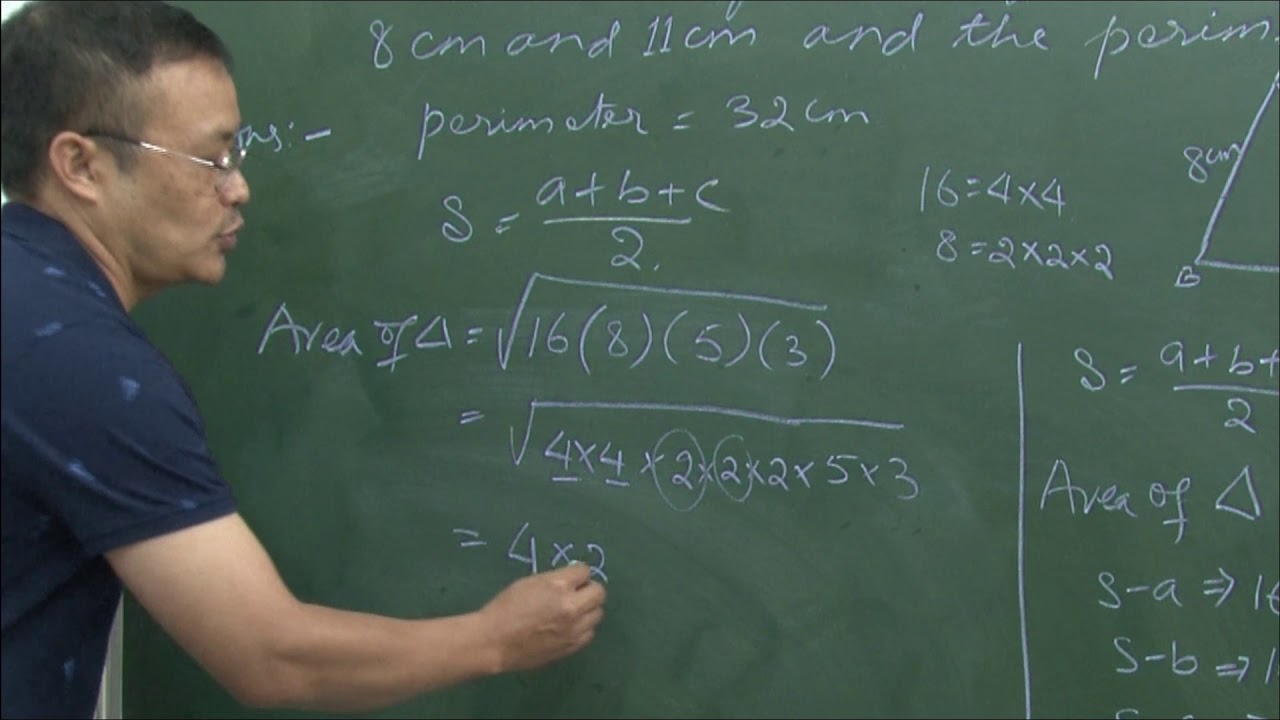 8 cm and 11 cm and the perim
ns:- perimeter = 32 cm
S = a+b+c / 2
16 = 4×4
8 = 2×2×2
8 cm
B
Area of Δ = √16(8)(5)(3)
= √4×4×2×2×2×5×3
= 4×2
S = a+b+ / 2
Area of Δ
S-a ⇒ 16
S-b ⇒ 1